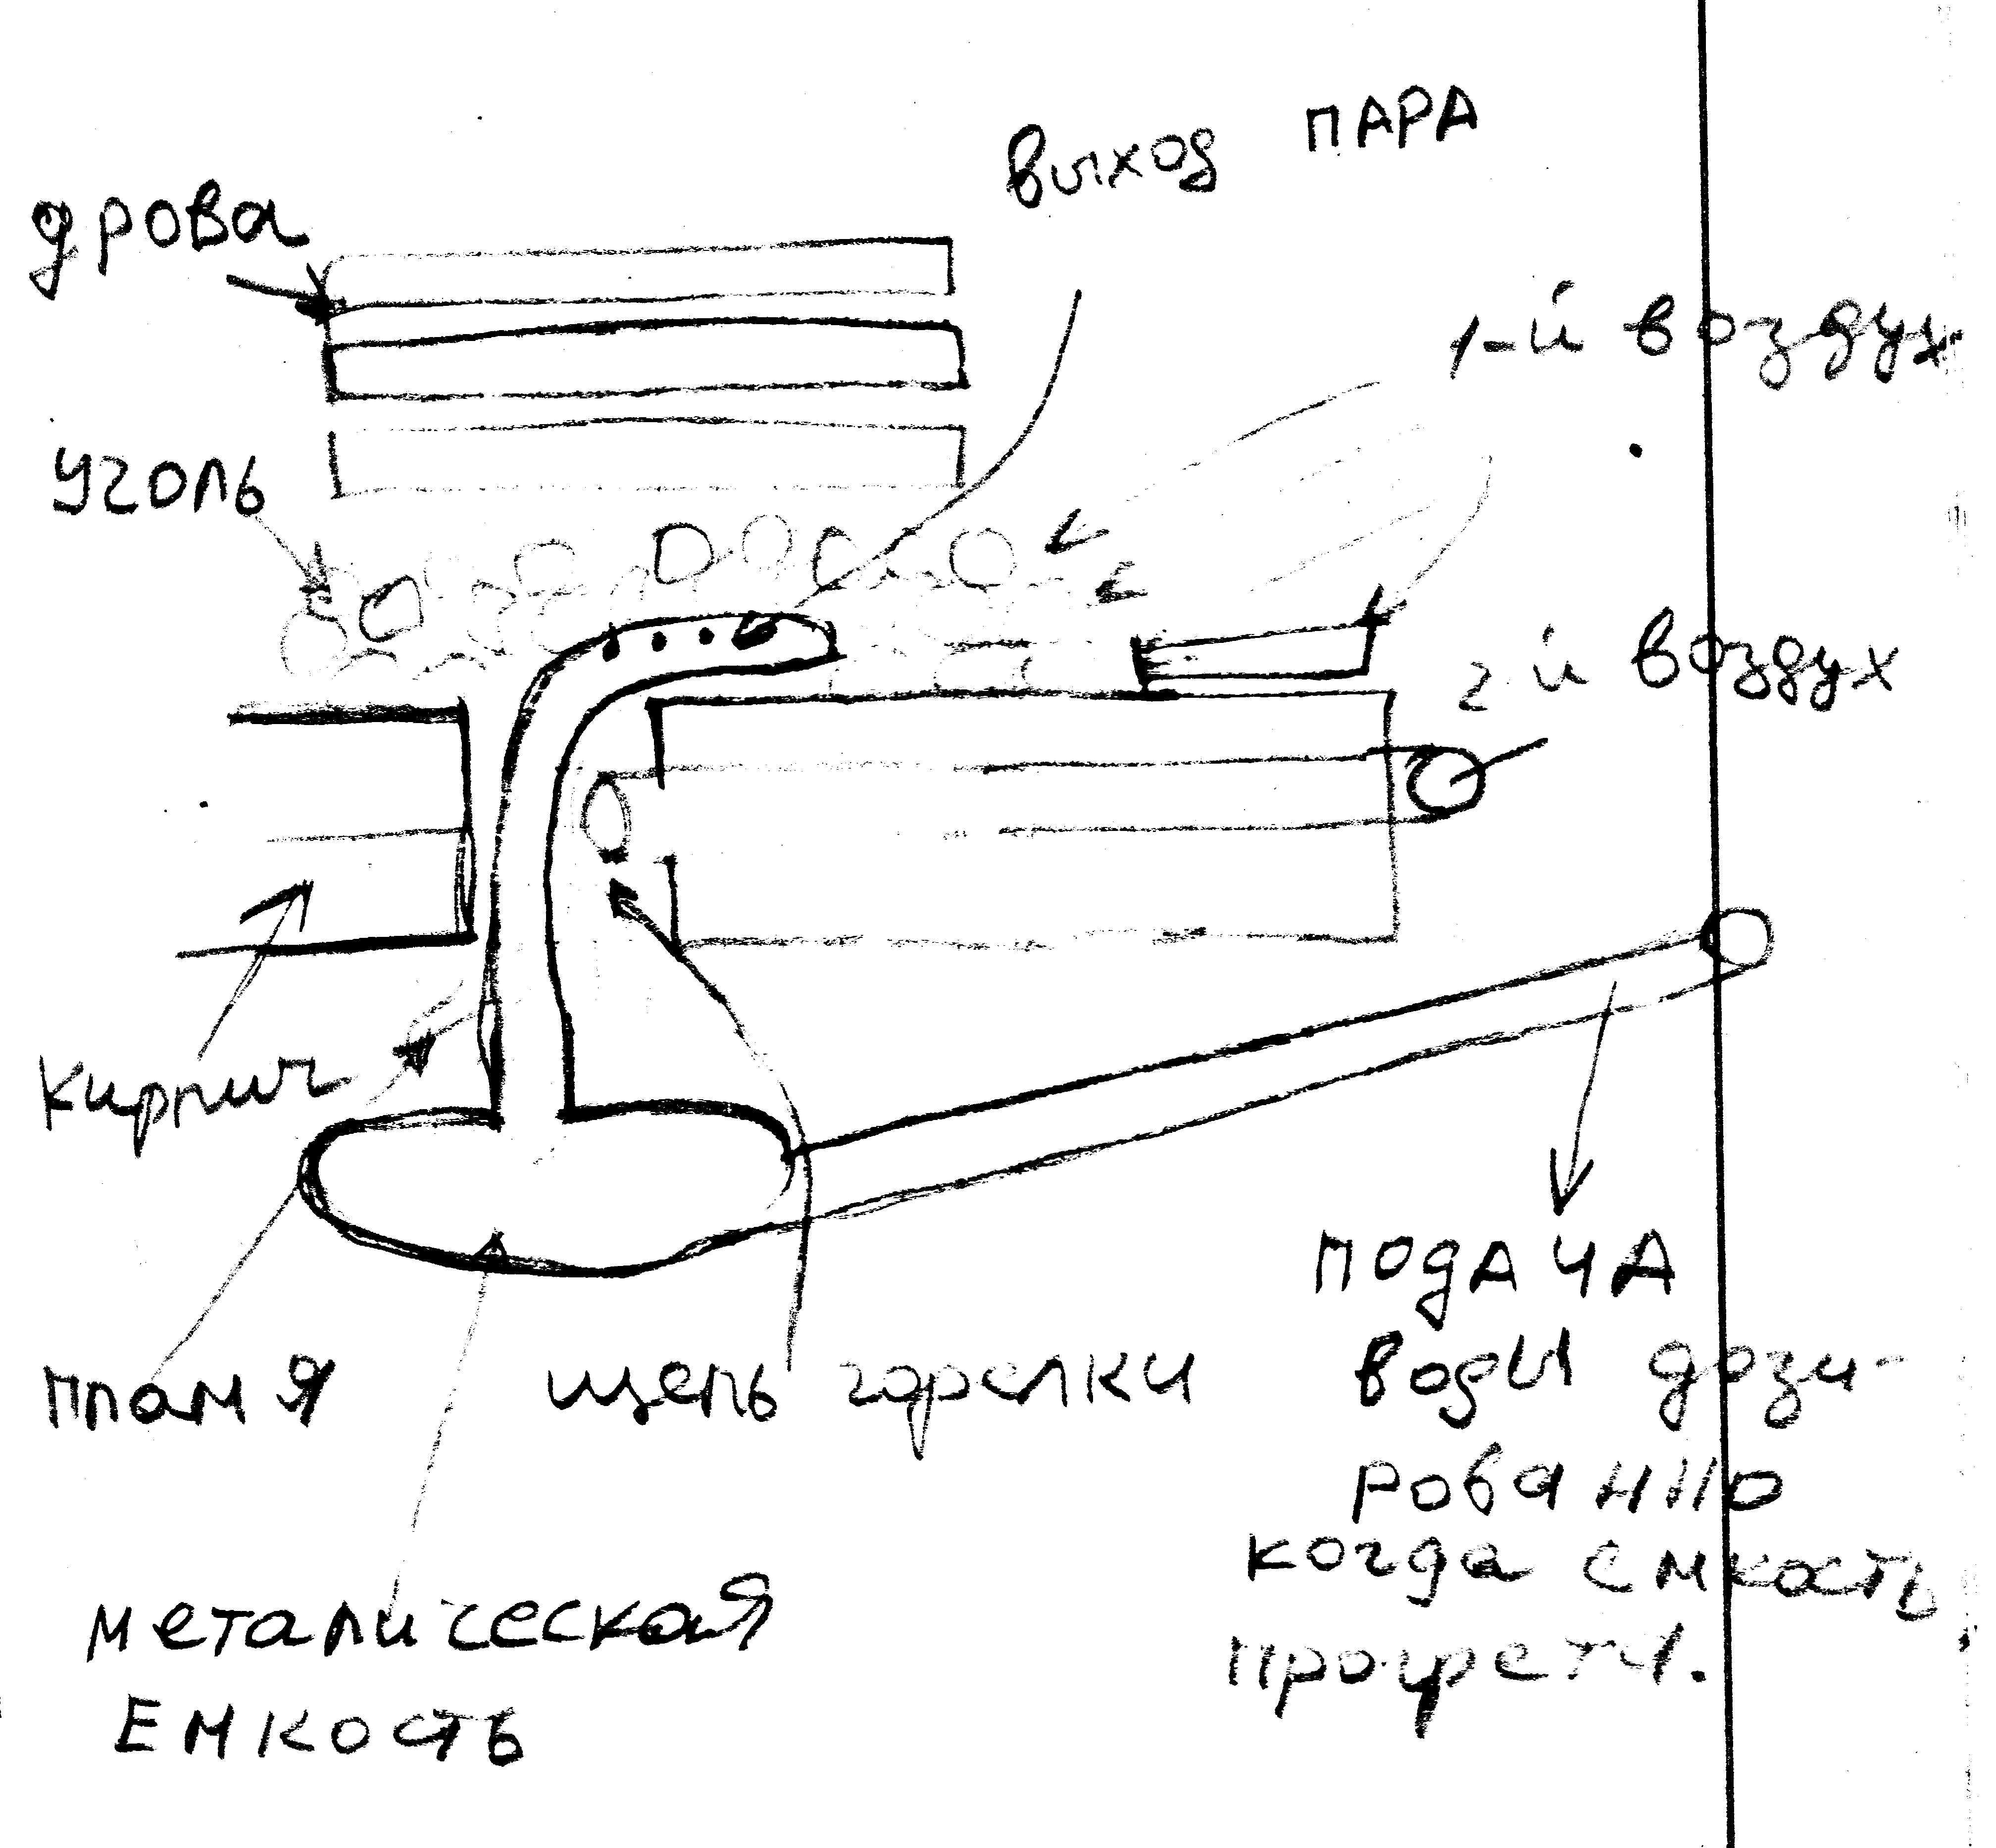 выход ПАРА
дрова
1-й воздух
уголь
2-й воздух
кирпич
подАчА
пламя
щель горелки
воды дози-
рованно
когда емкость
прогрета.
металическая
Емкость